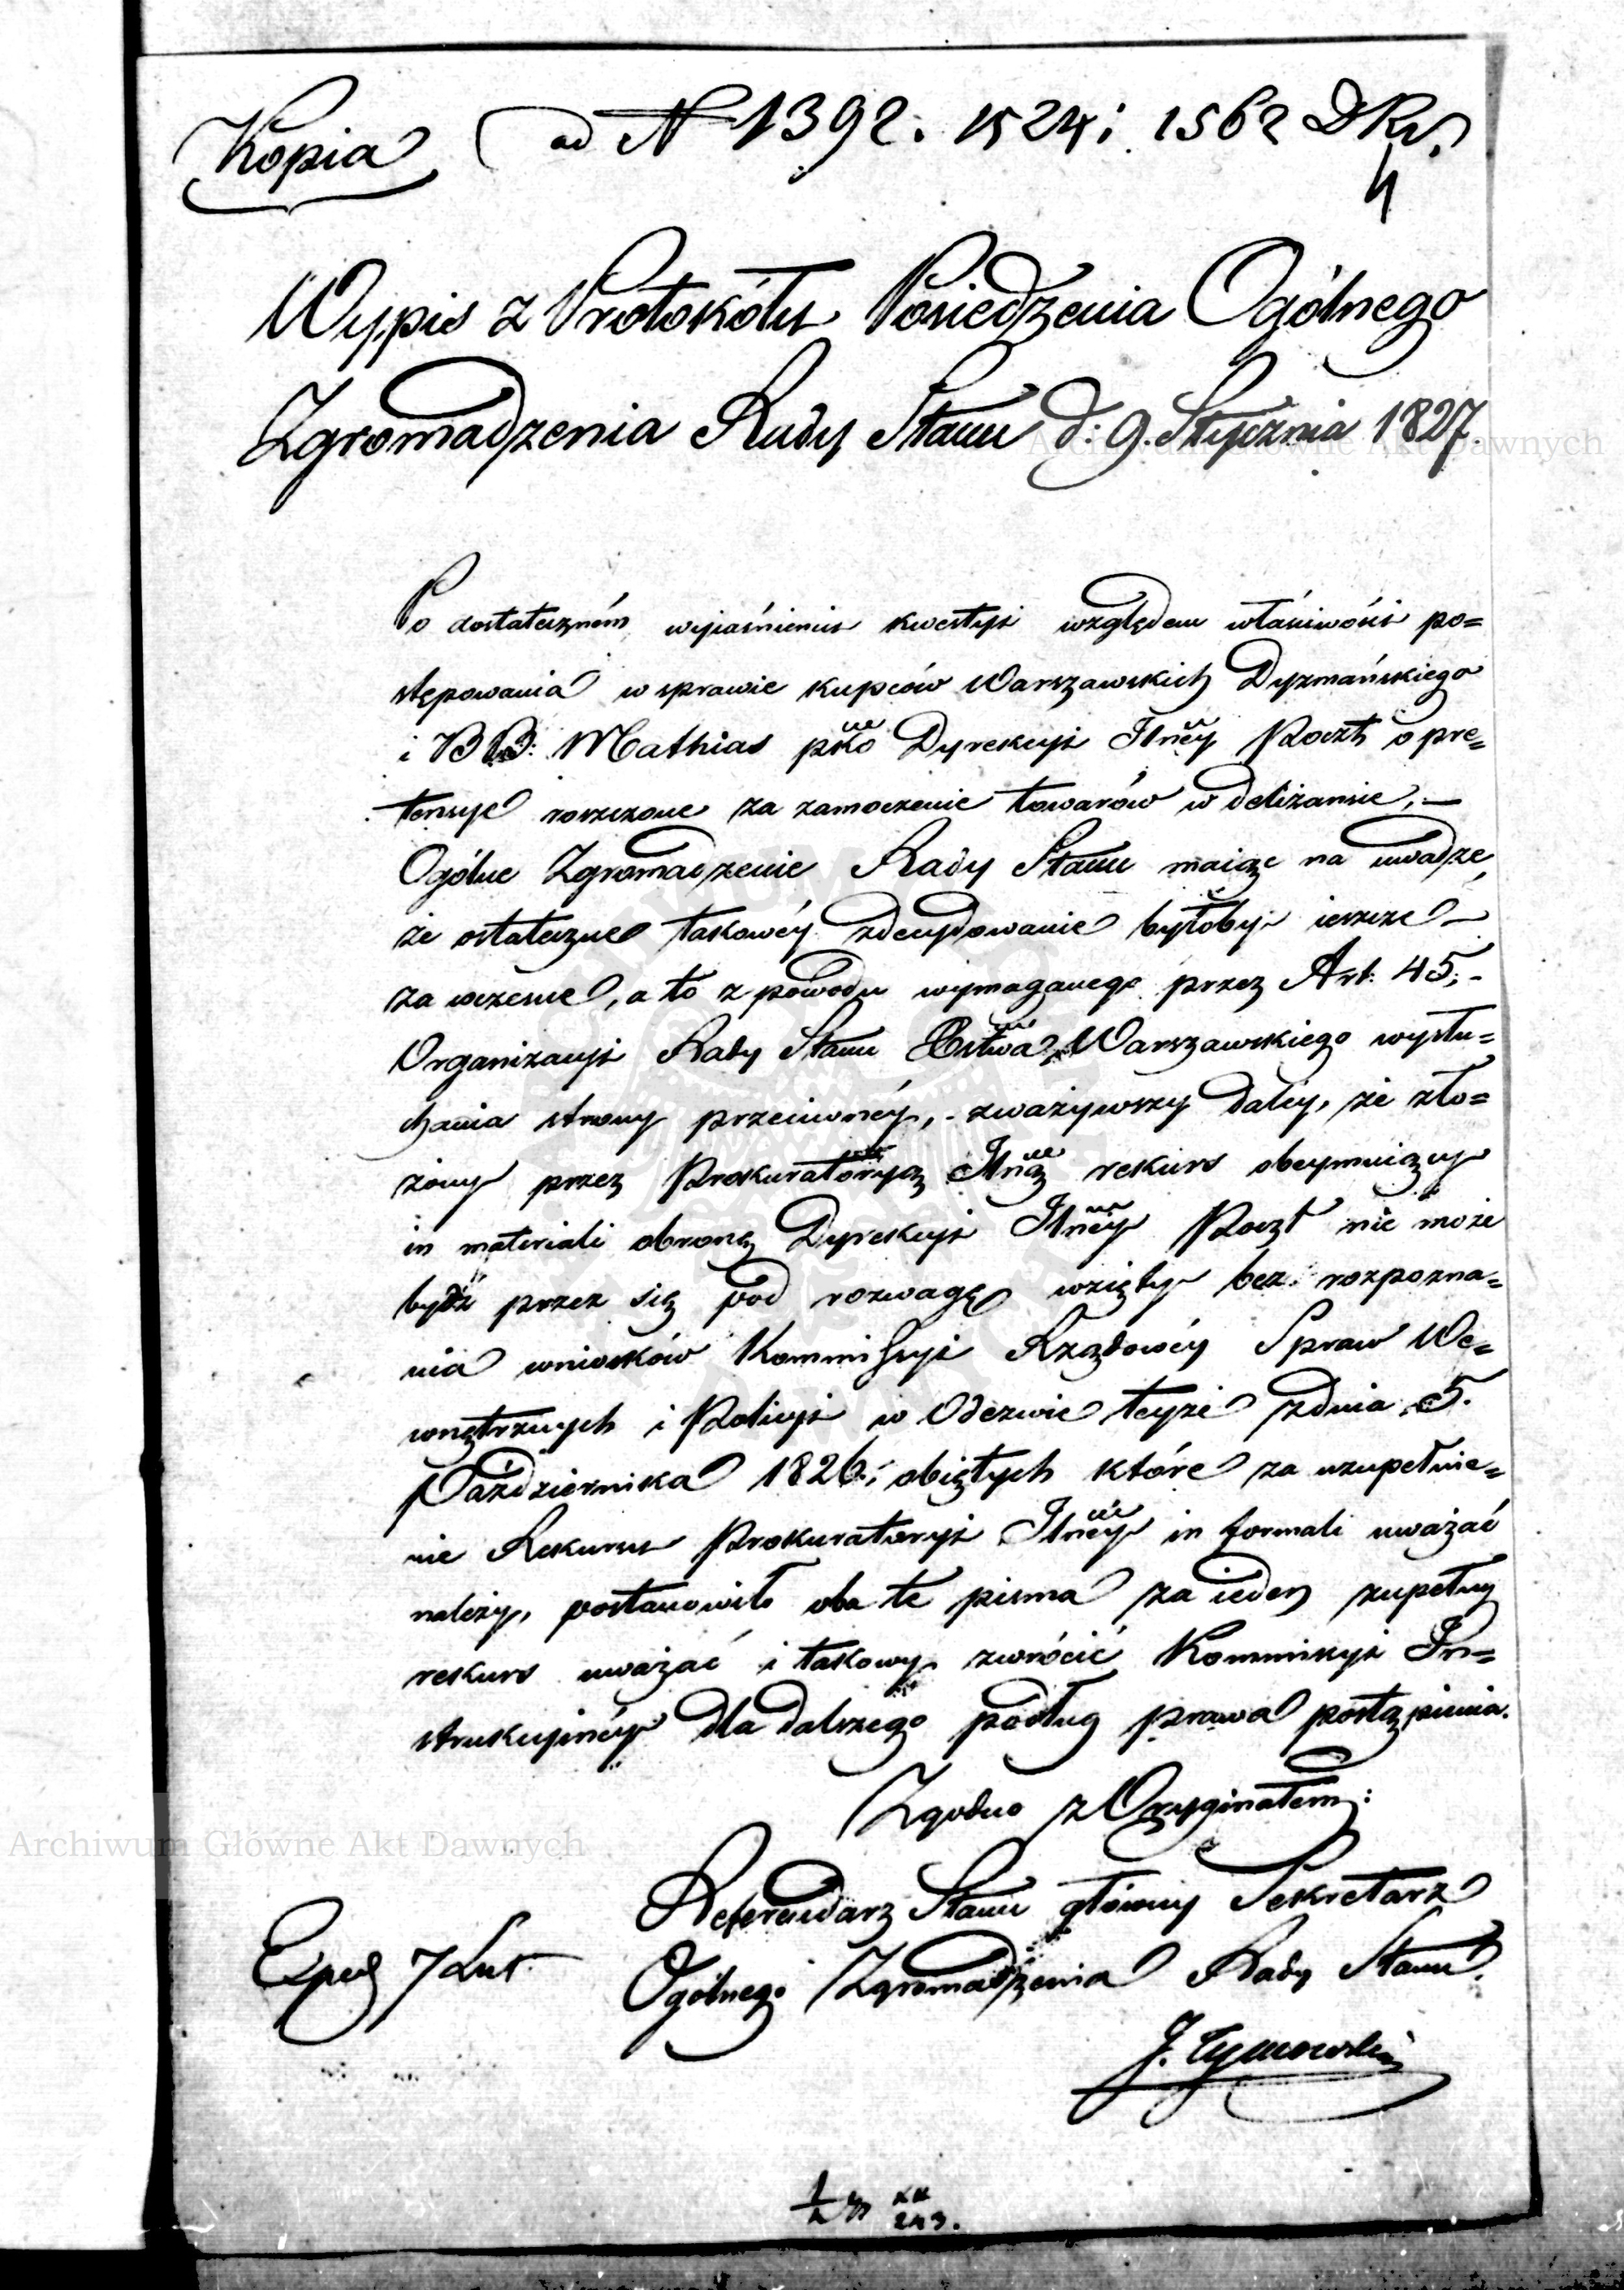 Kopia
ad N 1392. 1524; 1562 DRS.
4
Wypis z Protokółu Posiedzenia Ogólnego
Zgromadzenia Rady Stanu d: 9. Stycznia 1827.
Po dostateczném wyiaśnieniu kwestyi względem właściwości po=
stępowania w sprawie kupców Warszawskich Dyzmańskiego
i BB: Mathias pko Dyrekcyi Jlnéy Poczt o pre=
tensye roszczone za zamoczenie towarów w deliżansie, —
Ogólne Zgromadzenie Rady Stanu maiąc na uwadze,
że ostateczne takowéy zdecydowanie byłoby ieszcze —
za wczesne, a to z powodu wymaganego przez Art: 45. -
Organizacyi Rady Stanu Xstwa Warszawskiego wysłu=
chania strony przeciwnéy, - zważywszy daléy, że zło=
żony przez Prokuratoryą Jlną rekurs obeymuiący
in materiali obronę Dyrekcyi Jlnéy Poczt nie może
bydź przez się pod rozwagę wzięty bez rozpozna=
nia wniosków Kommissyi Rządowéy Spraw We=
wnętrznych i Policyi w Odezwie teyże z dnia 5.
Października 1826; obiętych które za uzupełnie=
nie Rekursu Prokuratoryi Jlnéy in formali uważać
należy, postanowiło oba te pisma za ieden zupełny
rekurs uważać i takowy zwrócić Kommissyi In=
strukcyinéy dla dalszego podług prawa postąpienia.
Zgodno z Oryginałem:
Referendarz Stanu główny Sekretarz
Ogólnego Zgromadzenia Rady Stanu.
Exped 7 Lut.
J. Tymowski
243.
Archiwum Główne Akt Dawnych
Archiwum Główne Akt Dawnych